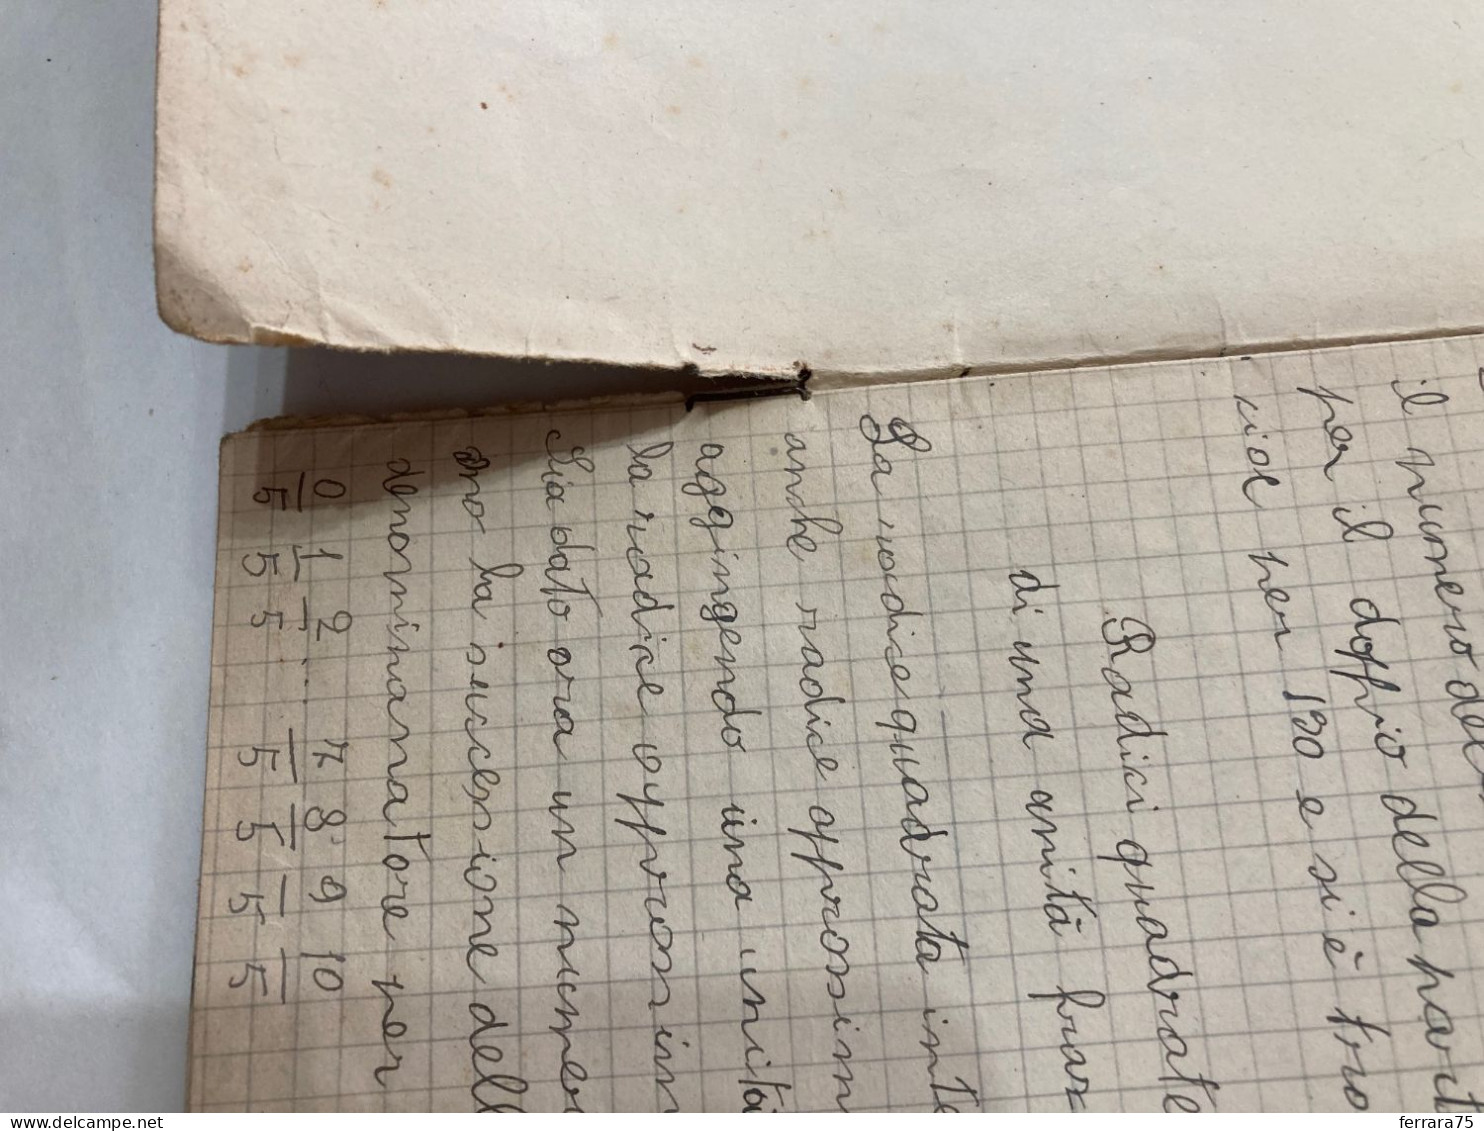 il numero del
per il doppio della parit
cioè per 120 e si è tro
Radici quadrate
di una unità fraz
La radice quadrata inte
anche radice approssim
aggiungendo una unità
la radice approssim
Sia dato ora un numer
dno la successione dell
denominatore per
0 1 2 7 8 9 10
5 5 5 ... 5 5 5 5
delcampe.net
ferrara75